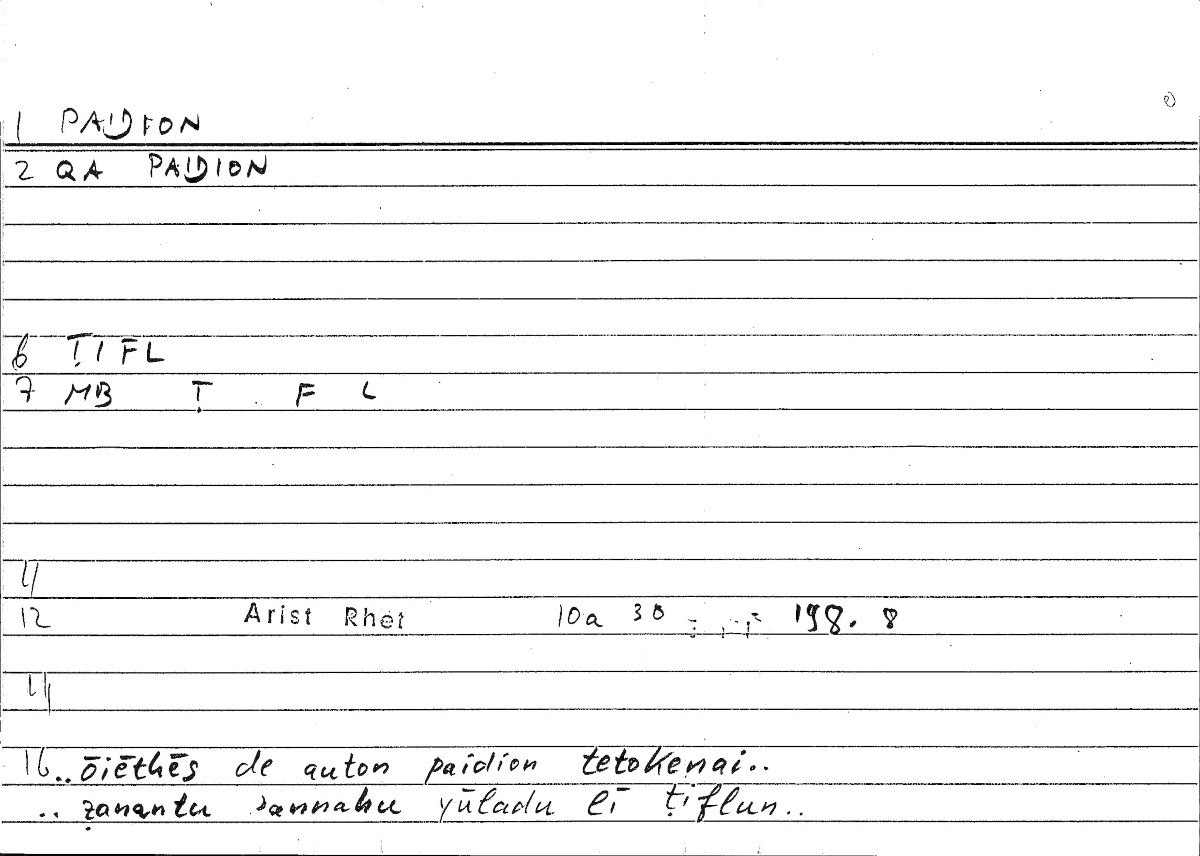 1 PAIDION
2 QA PAIDION
6 ṬIFL
7 MB Ṭ F L
11
12 Arist Rhet 10a 30 198.8
14
16.. ōiēthēs de auton paidion tetokenai..
.. ẓanantu annahu yūladu lī ṭiflun..